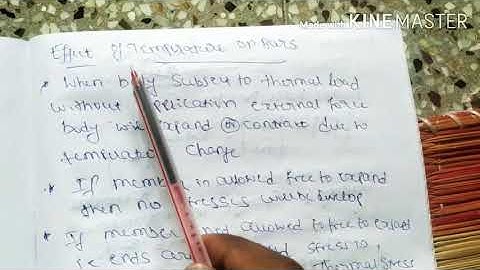 Made with KINEMASTER
Effect of Temperature on Bars
When body Subject to thermal load
without application external force
body will expand or contract due to
temperature change
If member in allowed free to expand
then no stresses will be develop
If member not allowed free to expand
ends stress is
thermal stress